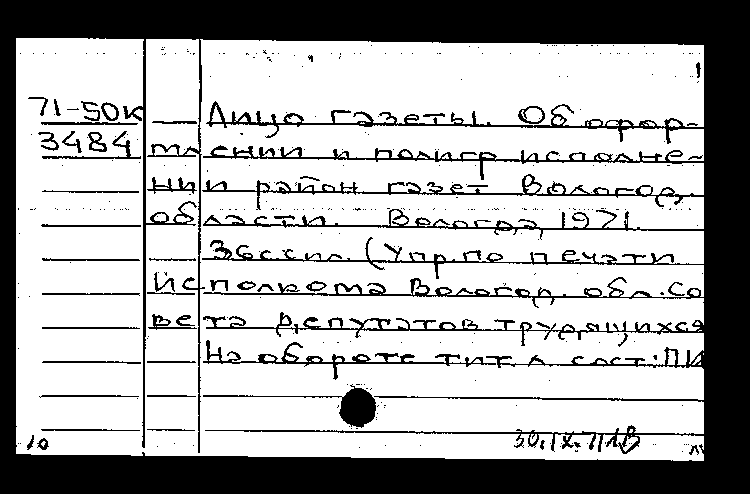 1
71-50к Лицо газеты. Об офор-
3484 млении и полигр исполне-
нии район газет Вологод.
области. Вологда, 1971.
36 с с ил. (Упр. по печати
Исполкома Вологод. обл. Со
вета депутатов трудящихся
На обороте тит. л сост: ПИ
10 30.IX.71